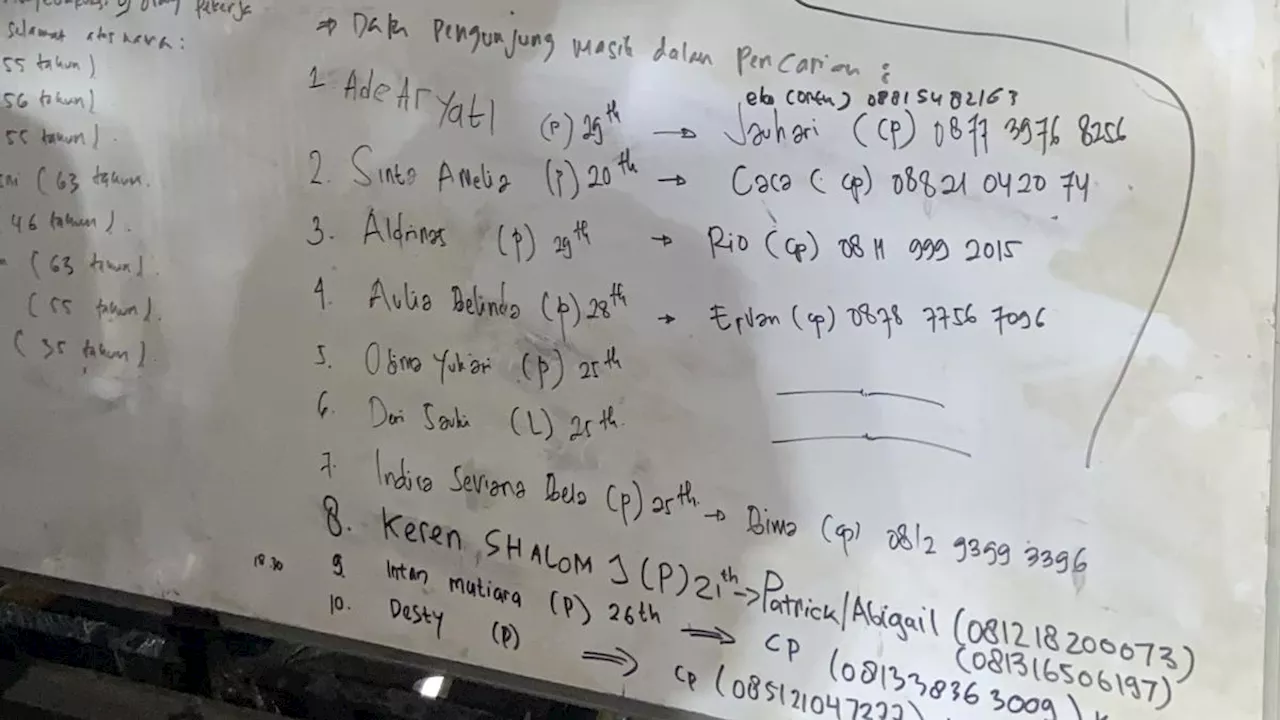 pekerja
selamat
55 tahun)
56 tahun)
55 tahun).
(63 tahun.
46 tahun).
(63 tahun).
(55 tahun).
(35 tahun).
⇒ Data Pengunjung masih dalam Pencarian :
eko 08815482163
1 Ade Aryati (P) 29th → Jauhari (CP) 0877 3976 8256
2. Sinta Amelia (P) 20th → Caca (CP) 08821 0420 74
3. Aldrinas (P) 29th → Rio (CP) 0811 999 2015
4. Aulia Belinda (P) 28th → Ervan (CP) 0878 7756 7096
5. Osima Yukari (P) 25th
6. Deri Sauki (L) 25th.
7. Indira Seviana Bela (P) 25th. → Bima (CP) 0812 9399 3396
8. Keren SHALOM J (P) 21th → Patrick/Abigail (081218200073)
(081316506197)
18.30 9. Intan mutiara (P) 26th ⇒ CP (081338363009)
10. Desty (P) ⇒ CP (085121047277)